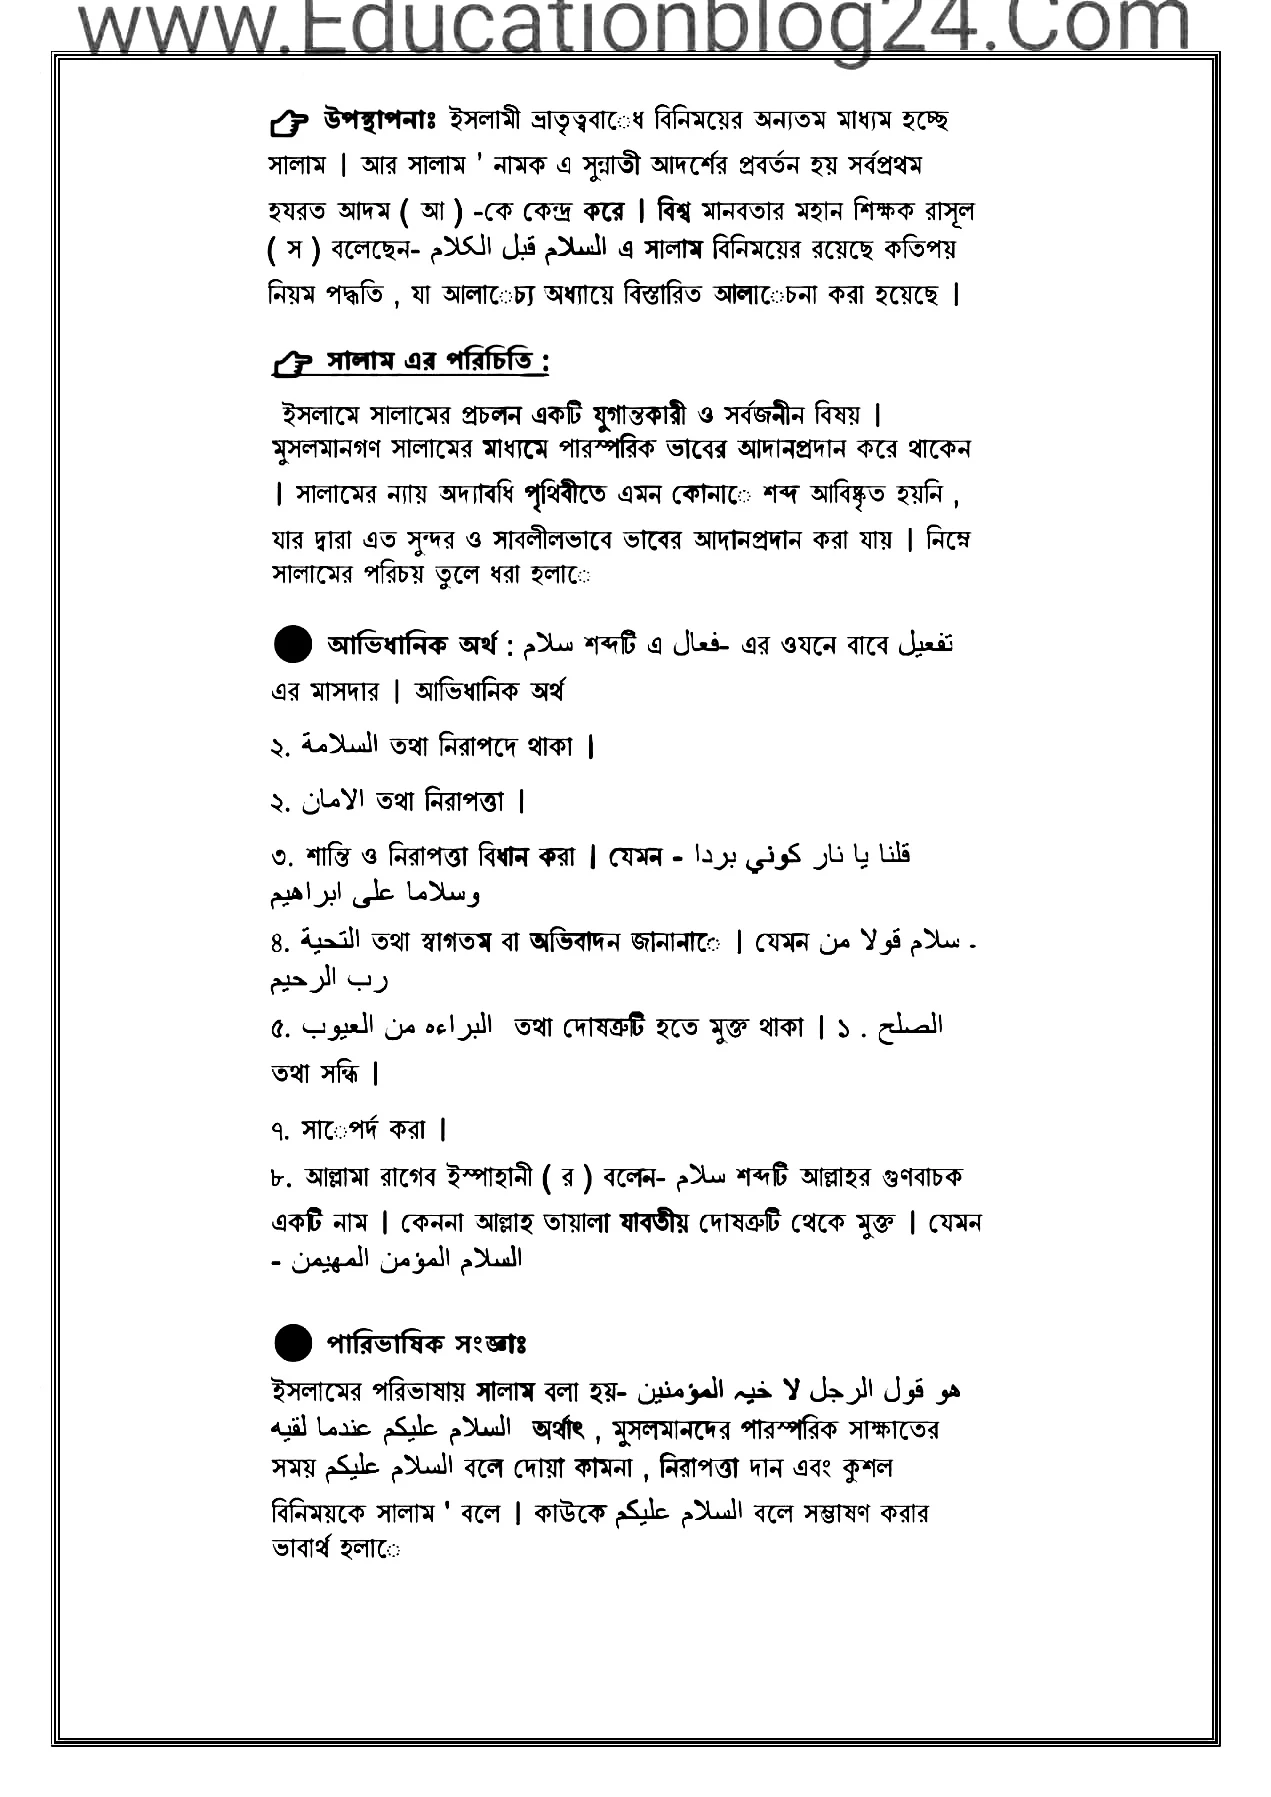 www.Educationblog24.Com
উপস্থাপনাঃ ইসলামী ভ্রাতৃত্ববাোধ বিনিময়ের অন্যতম মাধ্যম হচ্ছে
সালাম | আর সালাম ' নামক এ সুন্নাতী আদর্শের প্রবর্তন হয় সর্বপ্রথম
হযরত আদম ( আ ) -কে কেন্দ্র করে | বিশ্ব মানবতার মহান শিক্ষক রাসূল
( স ) বলেছেন- السلام قبل الكلام এ সালাম বিনিময়ের রয়েছে কতিপয়
নিয়ম পদ্ধতি , যা আলাোচ্য অধ্যায়ে বিস্তারিত আলাোচনা করা হয়েছে |
সালাম এর পরিচিতি :
ইসলামে সালামের প্রচলন একটি যুগান্তকারী ও সর্বজনীন বিষয় |
মুসলমানগণ সালামের মাধ্যমে পারস্পরিক ভাবের আদানপ্রদান করে থাকেন
| সালামের ন্যায় অদ্যাবধি পৃথিবীতে এমন কোনাো শব্দ আবিষ্কৃত হয়নি ,
যার দ্বারা এত সুন্দর ও সাবলীলভাবে ভাবের আদানপ্রদান করা যায় | নিম্নে
সালামের পরিচয় তুলে ধরা হলাো
আভিধানিক অর্থ : سلام শব্দটি এ فعال- এর ওযনে বাবে تفعيل
এর মাসদার | আভিধানিক অর্থ
২. السلامة তথা নিরাপদে থাকা |
২. الامان তথা নিরাপত্তা |
৩. শান্তি ও নিরাপত্তা বিধান করা | যেমন - قلنا يا نار كوني بردا
وسلاما على ابراهيم
৪. التحية তথা স্বাগতম বা অভিবাদন জানানাো | যেমন سلام قولا من -
رب الرحيم
৫. البراءه من العيوب তথা দোষত্রুটি হতে মুক্ত থাকা | ১ . الصلح
তথা সন্ধি |
৭. সাোপর্দ করা |
৮. আল্লামা রাগেব ইস্পাহানী ( র ) বলেন- سلام শব্দটি আল্লাহর গুণবাচক
একটি নাম | কেননা আল্লাহ তায়ালা যাবতীয় দোষত্রুটি থেকে মুক্ত | যেমন
- السلام المؤمن المهيمن
পারিভাষিক সংজ্ঞাঃ
ইসলামের পরিভাষায় সালাম বলা হয়- هو قول الرجل لا خيه المؤمنين
السلام عليكم عندما لقيه অর্থাৎ , মুসলমানদের পারস্পরিক সাক্ষাতের
সময় السلام عليكم বলে দোয়া কামনা , নিরাপত্তা দান এবং কুশল
বিনিময়কে সালাম ' বলে | কাউকে السلام عليكم বলে সম্ভাষণ করার
ভাবার্থ হলাো